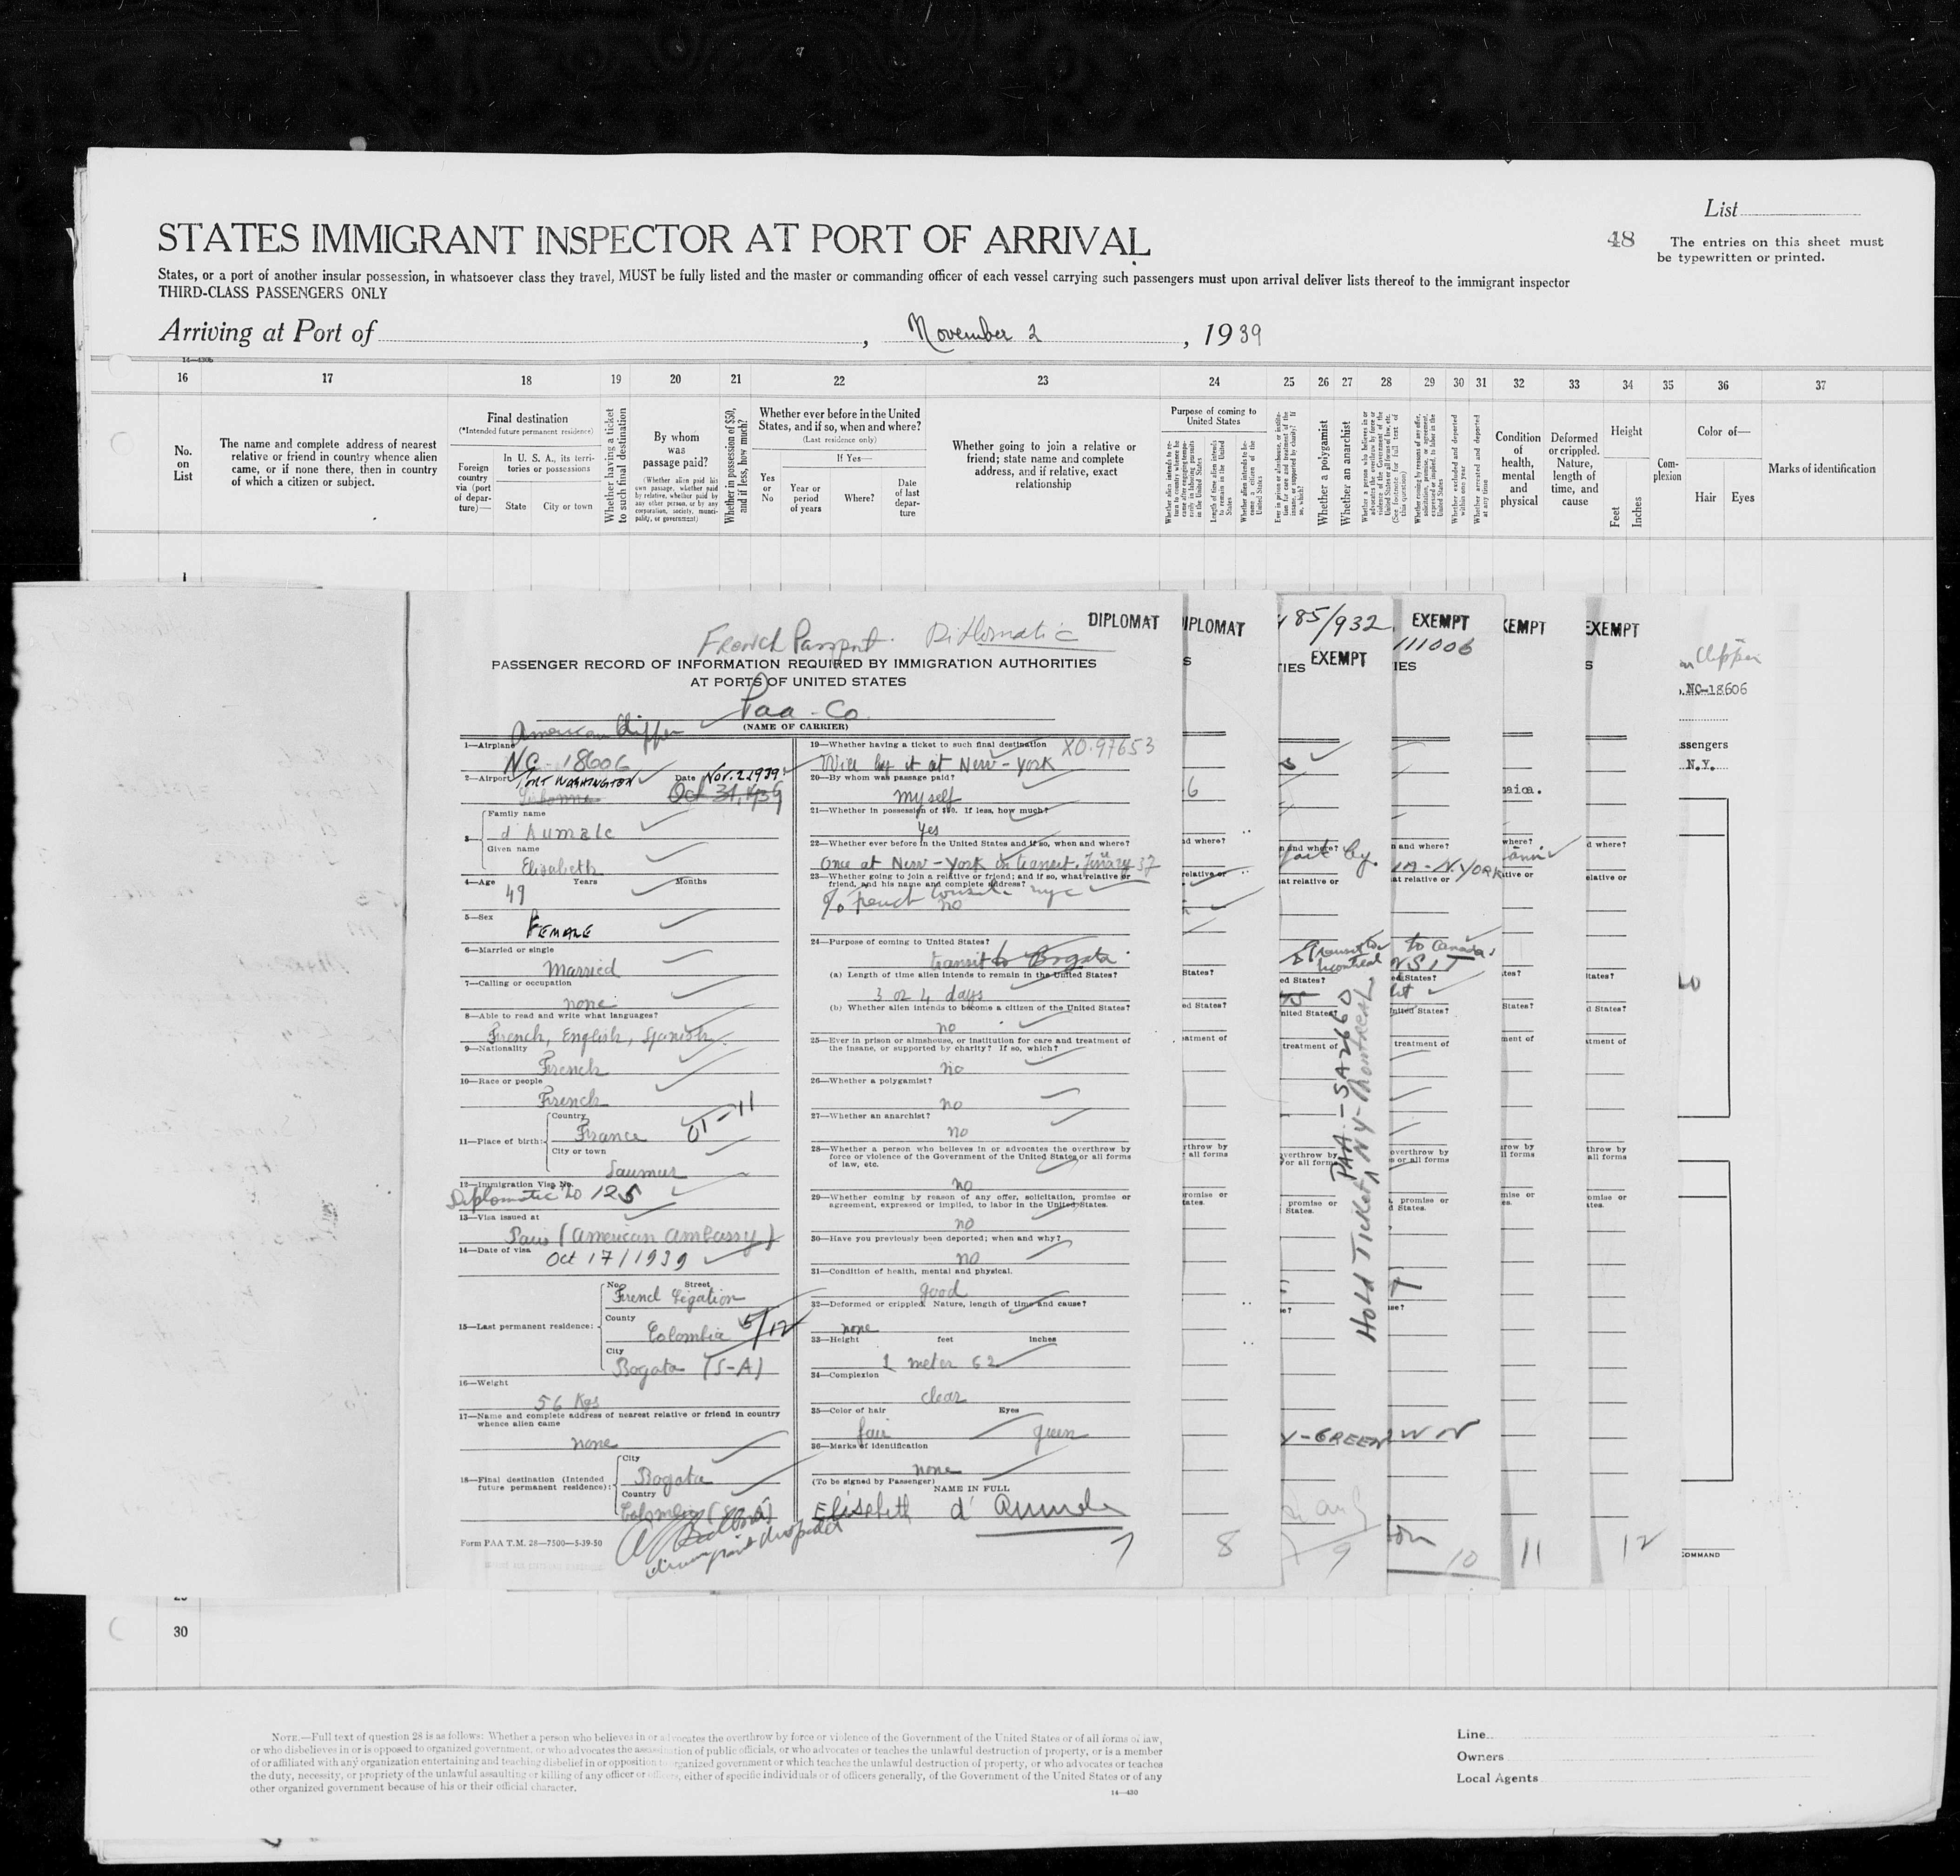 List
48
The entries on this sheet must
be typewritten or printed.
STATES IMMIGRANT INSPECTOR AT PORT OF ARRIVAL
States, or a port of another insular possession, in whatsoever class they travel, MUST be fully listed and the master or commanding officer of each vessel carrying such passengers must upon arrival deliver lists thereof to the immigrant inspector
THIRD-CLASS PASSENGERS ONLY
Arriving at Port of , November 2 , 1939
16 17 18 19 20 21 22 23 24 25 26 27 28 29 30 31 32 33 34 35 36 37
No. on List
The name and complete address of nearest
relative or friend in country whence alien
came, or if none there, then in country
of which a citizen or subject.
Final destination
(*Intended future permanent residence)
Foreign country via (port of departure)—
In U. S. A., its territories or possessions
State
City or town
Whether having a ticket to such final destination
By whom was passage paid?
(Whether alien paid his own passage, whether paid by relative, whether paid by any other person, or by any corporation, society, municipality, or government)
Whether in possession of $50, and if less, how much?
Whether ever before in the United
States, and if so, when and where?
(Last residence only)
Yes or No
If Yes—
Year or period of years
Where?
Date of last departure
Whether going to join a relative or
friend; state name and complete
address, and if relative, exact
relationship
Purpose of coming to
United States
Length of time alien intends to remain in the United States
Whether a polygamist
Whether an anarchist
Condition of health, mental and physical
Deformed or crippled. Nature, length of time, and cause
Height
Feet
Inches
Complexion
Color of—
Hair
Eyes
Marks of identification
1
DIPLOMAT
French Passport. Diplomatic
PASSENGER RECORD OF INFORMATION REQUIRED BY IMMIGRATION AUTHORITIES
AT PORTS OF UNITED STATES
Paa - Co.
(NAME OF CARRIER)
American Clipper
1—Airplane NC-18606
2—Airport PORT WASHINGTON Date Nov. 2 1939
Lisbonne Oct 31, 1939
3 Family name
d'Aumale
Given name
Elisabeth
4—Age 49 Years Months
5—Sex
FEMALE
6—Married or single
Married
7—Calling or occupation
none
8—Able to read and write what languages?
French, English, Spanish
9—Nationality
French
10—Race or people
French
11—Place of birth:
Country
France
City or town
Saumur
12—Immigration Visa No.
Diplomatic No 125
13—Visa issued at
Paris (American Ambassy)
14—Date of visa
Oct 17/1939
15—Last permanent residence:
No. Street
French Legation
County
Colombia 5/12
City
Bogata (S-A)
16—Weight
56 Kgs
17—Name and complete address of nearest relative or friend in country
whence alien came
none
18—Final destination (Intended
future permanent residence):
City
Bogata
Country
Colombia (S-A)
Form PAA T.M. 28—7500—5-39-50
19—Whether having a ticket to such final destination XO.97653
Will by it at New-York
20—By whom was passage paid?
myself
21—Whether in possession of $50. If less, how much?
Yes
22—Whether ever before in the United States and if so, when and where?
Once at New-York in transit. 37
23—Whether going to join a relative or friend; and if so, what relative or
friend, and his name and complete address?
c/o french consul nyc
no
24—Purpose of coming to United States?
transit to Bogata
(a) Length of time alien intends to remain in the United States?
3 or 4 days
(b) Whether alien intends to become a citizen of the United States?
no
25—Ever in prison or almshouse, or institution for care and treatment of
the insane, or supported by charity? If so, which?
no
26—Whether a polygamist?
no
27—Whether an anarchist?
no
28—Whether a person who believes in or advocates the overthrow by
force or violence of the Government of the United States or all forms
of law, etc.
no
29—Whether coming by reason of any offer, solicitation, promise or
agreement, expressed or implied, to labor in the United States.
no
30—Have you previously been deported; when and why?
no
31—Condition of health, mental and physical.
good
32—Deformed or crippled. Nature, length of time and cause?
none
33—Height feet inches
1 meter 62
34—Complexion
clear
35—Color of hair Eyes
fair green
36—Marks of identification
none
(To be signed by Passenger)
NAME IN FULL
Elisabeth d'Aumale
7
IPLOMAT
8
85/932
EXEMPT
Hold Ticket NY-Montreal
PAA-SA2660
Y-GREEN
9
EXEMPT
111006
to Canada
10
XEMPT
11
EXEMPT
12
Clipper
NC-18606
ssengers
N.Y.
COMMAND
30
NOTE.—Full text of question 28 is as follows: Whether a person who believes in or advocates the overthrow by force or violence of the Government of the United States or of all forms of law,
or who disbelieves in or is opposed to organized government, or who advocates the assassination of public officials, or who advocates or teaches the unlawful destruction of property, or is a member
of or affiliated with any organization entertaining and teaching disbelief in or opposition to organized government or which teaches the unlawful destruction of property, or who advocates or teaches
the duty, necessity, or propriety of the unlawful assaulting or killing of any officer or officers, either of specific individuals or of officers generally, of the Government of the United States or of any
other organized government because of his or their official character.
14—430
Line
Owners
Local Agents